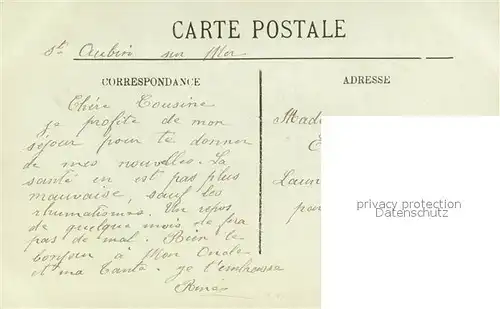 CARTE POSTALE
St Aubin sur Mer
CORRESPONDANCE
ADRESSE
Chère Cousine
je profite de mon
séjour pour te donner
de mes nouvelles. La
santé en est pas plus
mauvaise, sauf les
rhumatismes. Un repos
de quelque mois ne fra
pas de mal. Bien le
bonjour à Mon Oncle
et ma Tante. je t'embrasse
Mada
privatsammler
Datenschutz